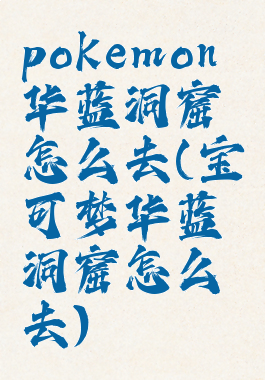 pokemon
华蓝洞窟
怎么去(宝
可梦华蓝
洞窟怎么
去)